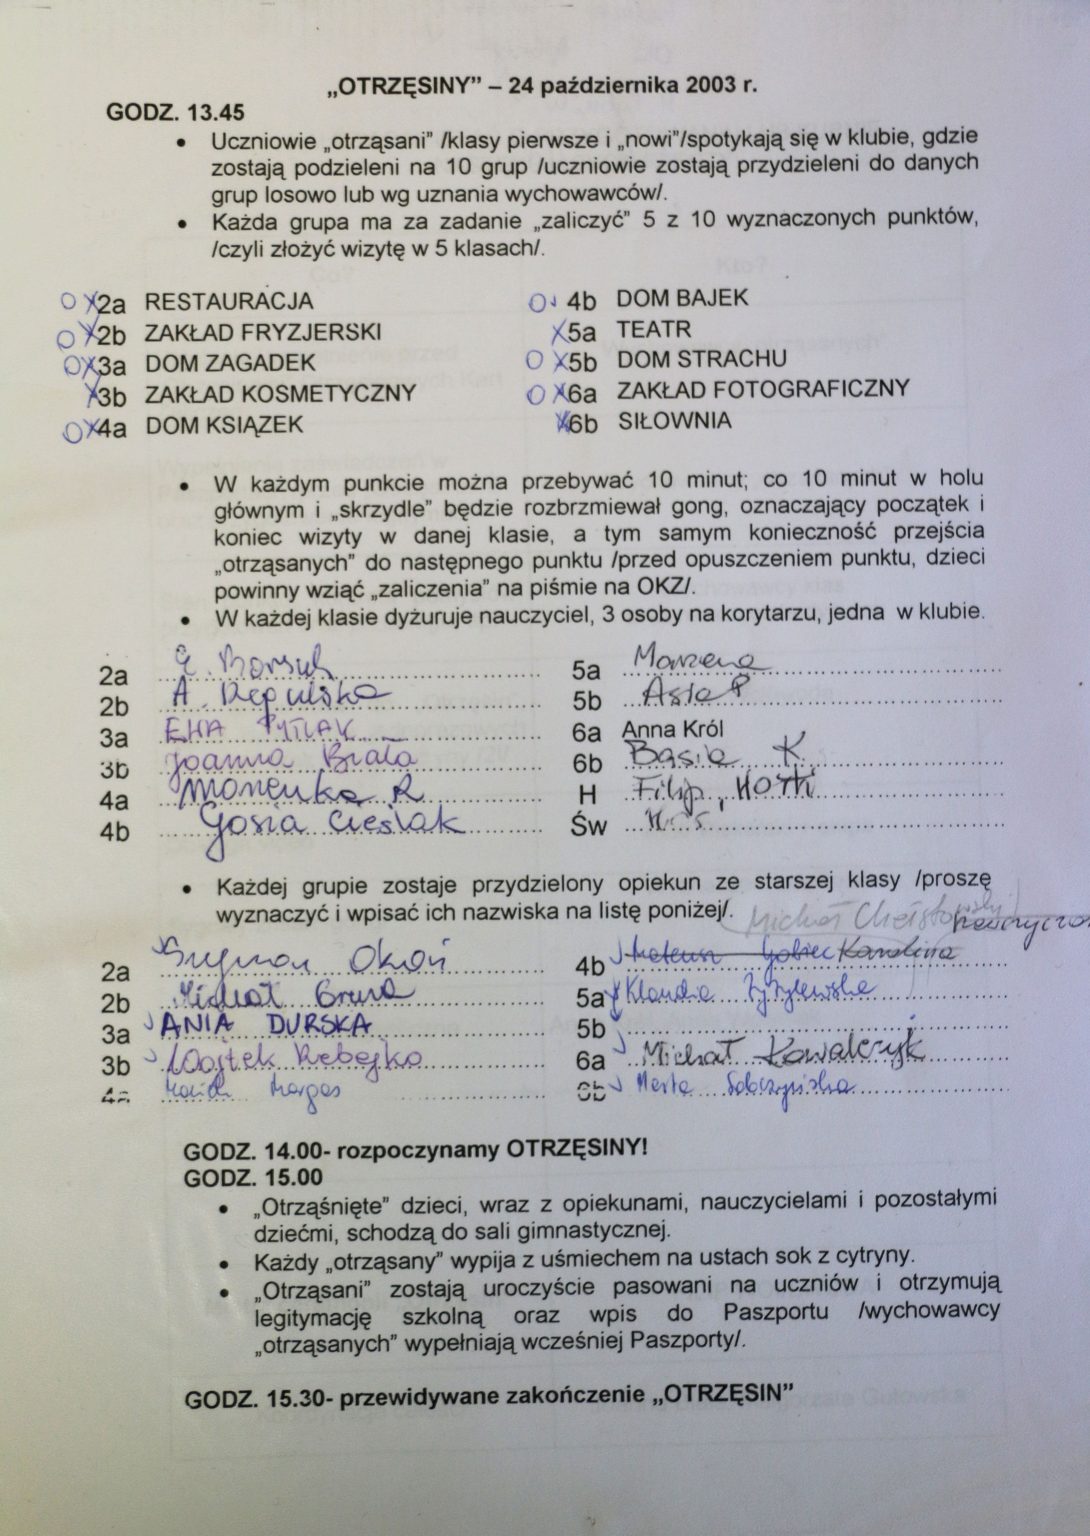 „OTRZĘSINY” – 24 października 2003 r.
GODZ. 13.45
• Uczniowie „otrząsani” /klasy pierwsze i „nowi”/spotykają się w klubie, gdzie
zostają podzieleni na 10 grup /uczniowie zostają przydzieleni do danych
grup losowo lub wg uznania wychowawców/.
• Każda grupa ma za zadanie „zaliczyć” 5 z 10 wyznaczonych punktów,
/czyli złożyć wizytę w 5 klasach/.
2a RESTAURACJA
2b ZAKŁAD FRYZJERSKI
3a DOM ZAGADEK
3b ZAKŁAD KOSMETYCZNY
4a DOM KSIĄZEK
4b DOM BAJEK
5a TEATR
5b DOM STRACHU
6a ZAKŁAD FOTOGRAFICZNY
6b SIŁOWNIA
• W każdym punkcie można przebywać 10 minut; co 10 minut w holu
głównym i „skrzydle” będzie rozbrzmiewał gong, oznaczający początek i
koniec wizyty w danej klasie, a tym samym konieczność przejścia
„otrząsanych” do następnego punktu /przed opuszczeniem punktu, dzieci
powinny wziąć „zaliczenia” na piśmie na OKZ/.
• W każdej klasie dyżuruje nauczyciel, 3 osoby na korytarzu, jedna w klubie.
2a E. Borsuk
2b A.
3a EWA PYTLAK
3b Joanna Biała
4a Monenka R
4b Gosia Cieślak
5a Marzena
5b Asia P
6a Anna Król
6b Basia K.
H Filip,
Św
• Każdej grupie zostaje przydzielony opiekun ze starszej klasy /proszę
wyznaczyć i wpisać ich nazwiska na listę poniżej/.
Michał
2a Szymon Okoń
2b Michał
3a ANIA DURSKA
3b Wojtek Rebejko
4a Margas
4b Mateusz Karolina
5a Klaudia
5b
6a Michał Kowalczyk
6b Marta Sobczyńska
GODZ. 14.00- rozpoczynamy OTRZĘSINY!
GODZ. 15.00
• „Otrząśnięte” dzieci, wraz z opiekunami, nauczycielami i pozostałymi
dziećmi, schodzą do sali gimnastycznej.
• Każdy „otrząsany” wypija z uśmiechem na ustach sok z cytryny.
• „Otrząsani” zostają uroczyście pasowani na uczniów i otrzymują
legitymację szkolną oraz wpis do Paszportu /wychowawcy
„otrząsanych” wypełniają wcześniej Paszporty/.
GODZ. 15.30- przewidywane zakończenie „OTRZĘSIN”